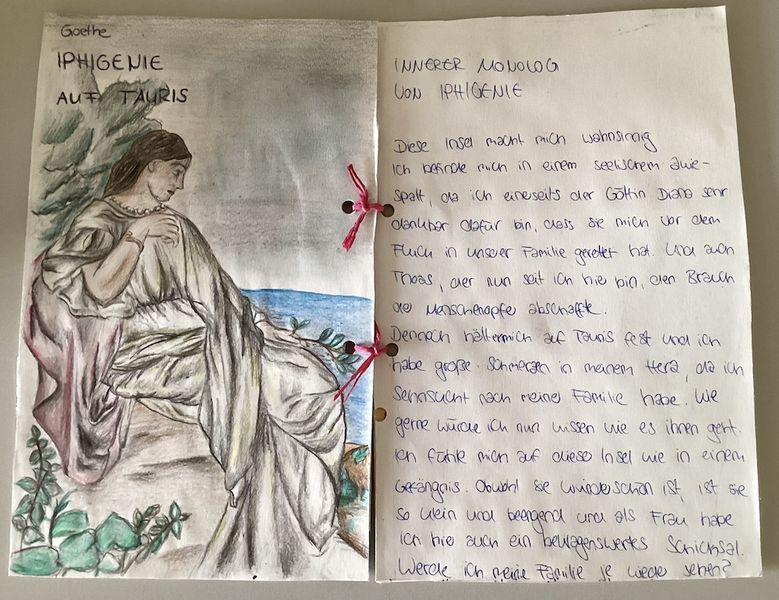 Goethe
IPHIGENIE
AUF TAURIS
INNERER MONOLOG
VON IPHIGENIE
Diese Insel macht mich wahnsinnig
Ich befinde mich in einem seelischem Zwie-
spalt, da ich einerseits der Göttin Diana sehr
dankbar dafür bin, dass sie mich vor dem
Fluch in unserer Familie gerettet hat. Und auch
Thoas, der nun seit ich hie bin, den Brauch
der Menschenopfer abschaffte.
Dennoch hält er mich auf Tauris fest und ich
habe große Schmerzen in meinem Herz, da ich
Sehnsucht nach meiner Familie habe. Wie
gerne würde ich nun wissen wie es ihnen geht.
Ich fühle mich auf diese Insel wie in einem
Gefängnis. Obwohl sie wunderschön ist, ist sie
so klein und beengend und als Frau habe
ich hie auch ein beklagenswertes Schicksal.
Werde ich meine Familie je wieder sehen?